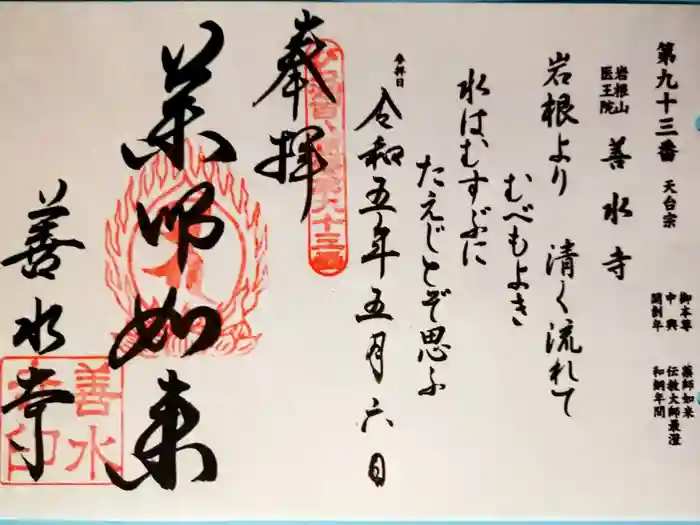 第九十三番 天台宗
岩根山
医王院
善水寺
御本尊 薬師如来
中興 伝教大師最澄
開創年 和銅年間
岩根より 清く流れて
むべもよき
水はむすぶに
たえじとぞ思ふ
参拝日
令和五年五月六日
奉拝
第九十三番
薬師如来
善水寺
善水
寺印